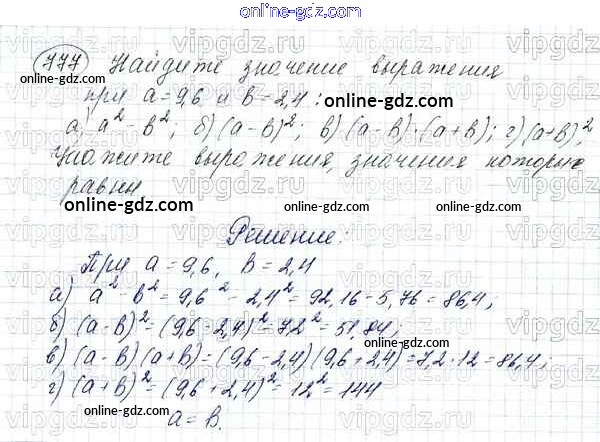 online-gdz.com
777 Найдите значение выражения
online-gdz.com
при a=9,6 и в=2,4: online-gdz.com
а) a² - в²; б) (a-в)²; в) (a-в)·(a+в); г) (a+в)².
Укажите выражения, значения которых
равны
online-gdz.com online-gdz.com online-gdz.com
Решение:
При a=9,6, в=2,4
а) a² - в² = 9,6² - 2,4² = 92,16 - 5,76 = 86,4;
б) (a-в)² = (9,6-2,4)² = 7,2² = 51,84;
в) (a-в)(a+в) = (9,6-2,4)(9,6+2,4) = 7,2·12 = 86,4;
г) (a+в)² = (9,6+2,4)² = 12² = 144
online-gdz.com online-gdz.com
а = в.
vipgdz.ru